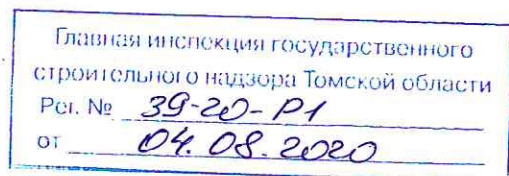 Главная инспекция государственного
строительного надзора Томской области
Рег. № 39-20-Р1
от 04.08.2020